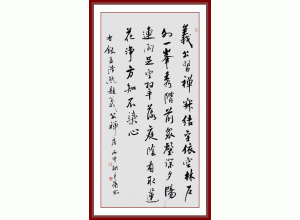 義公習禪寂結宇依空林戶
外一峯秀階前衆壑深夕陽
連雨足空翠落庭陰看取蓮
花淨方知不染心
錄孟浩然題義公禪房